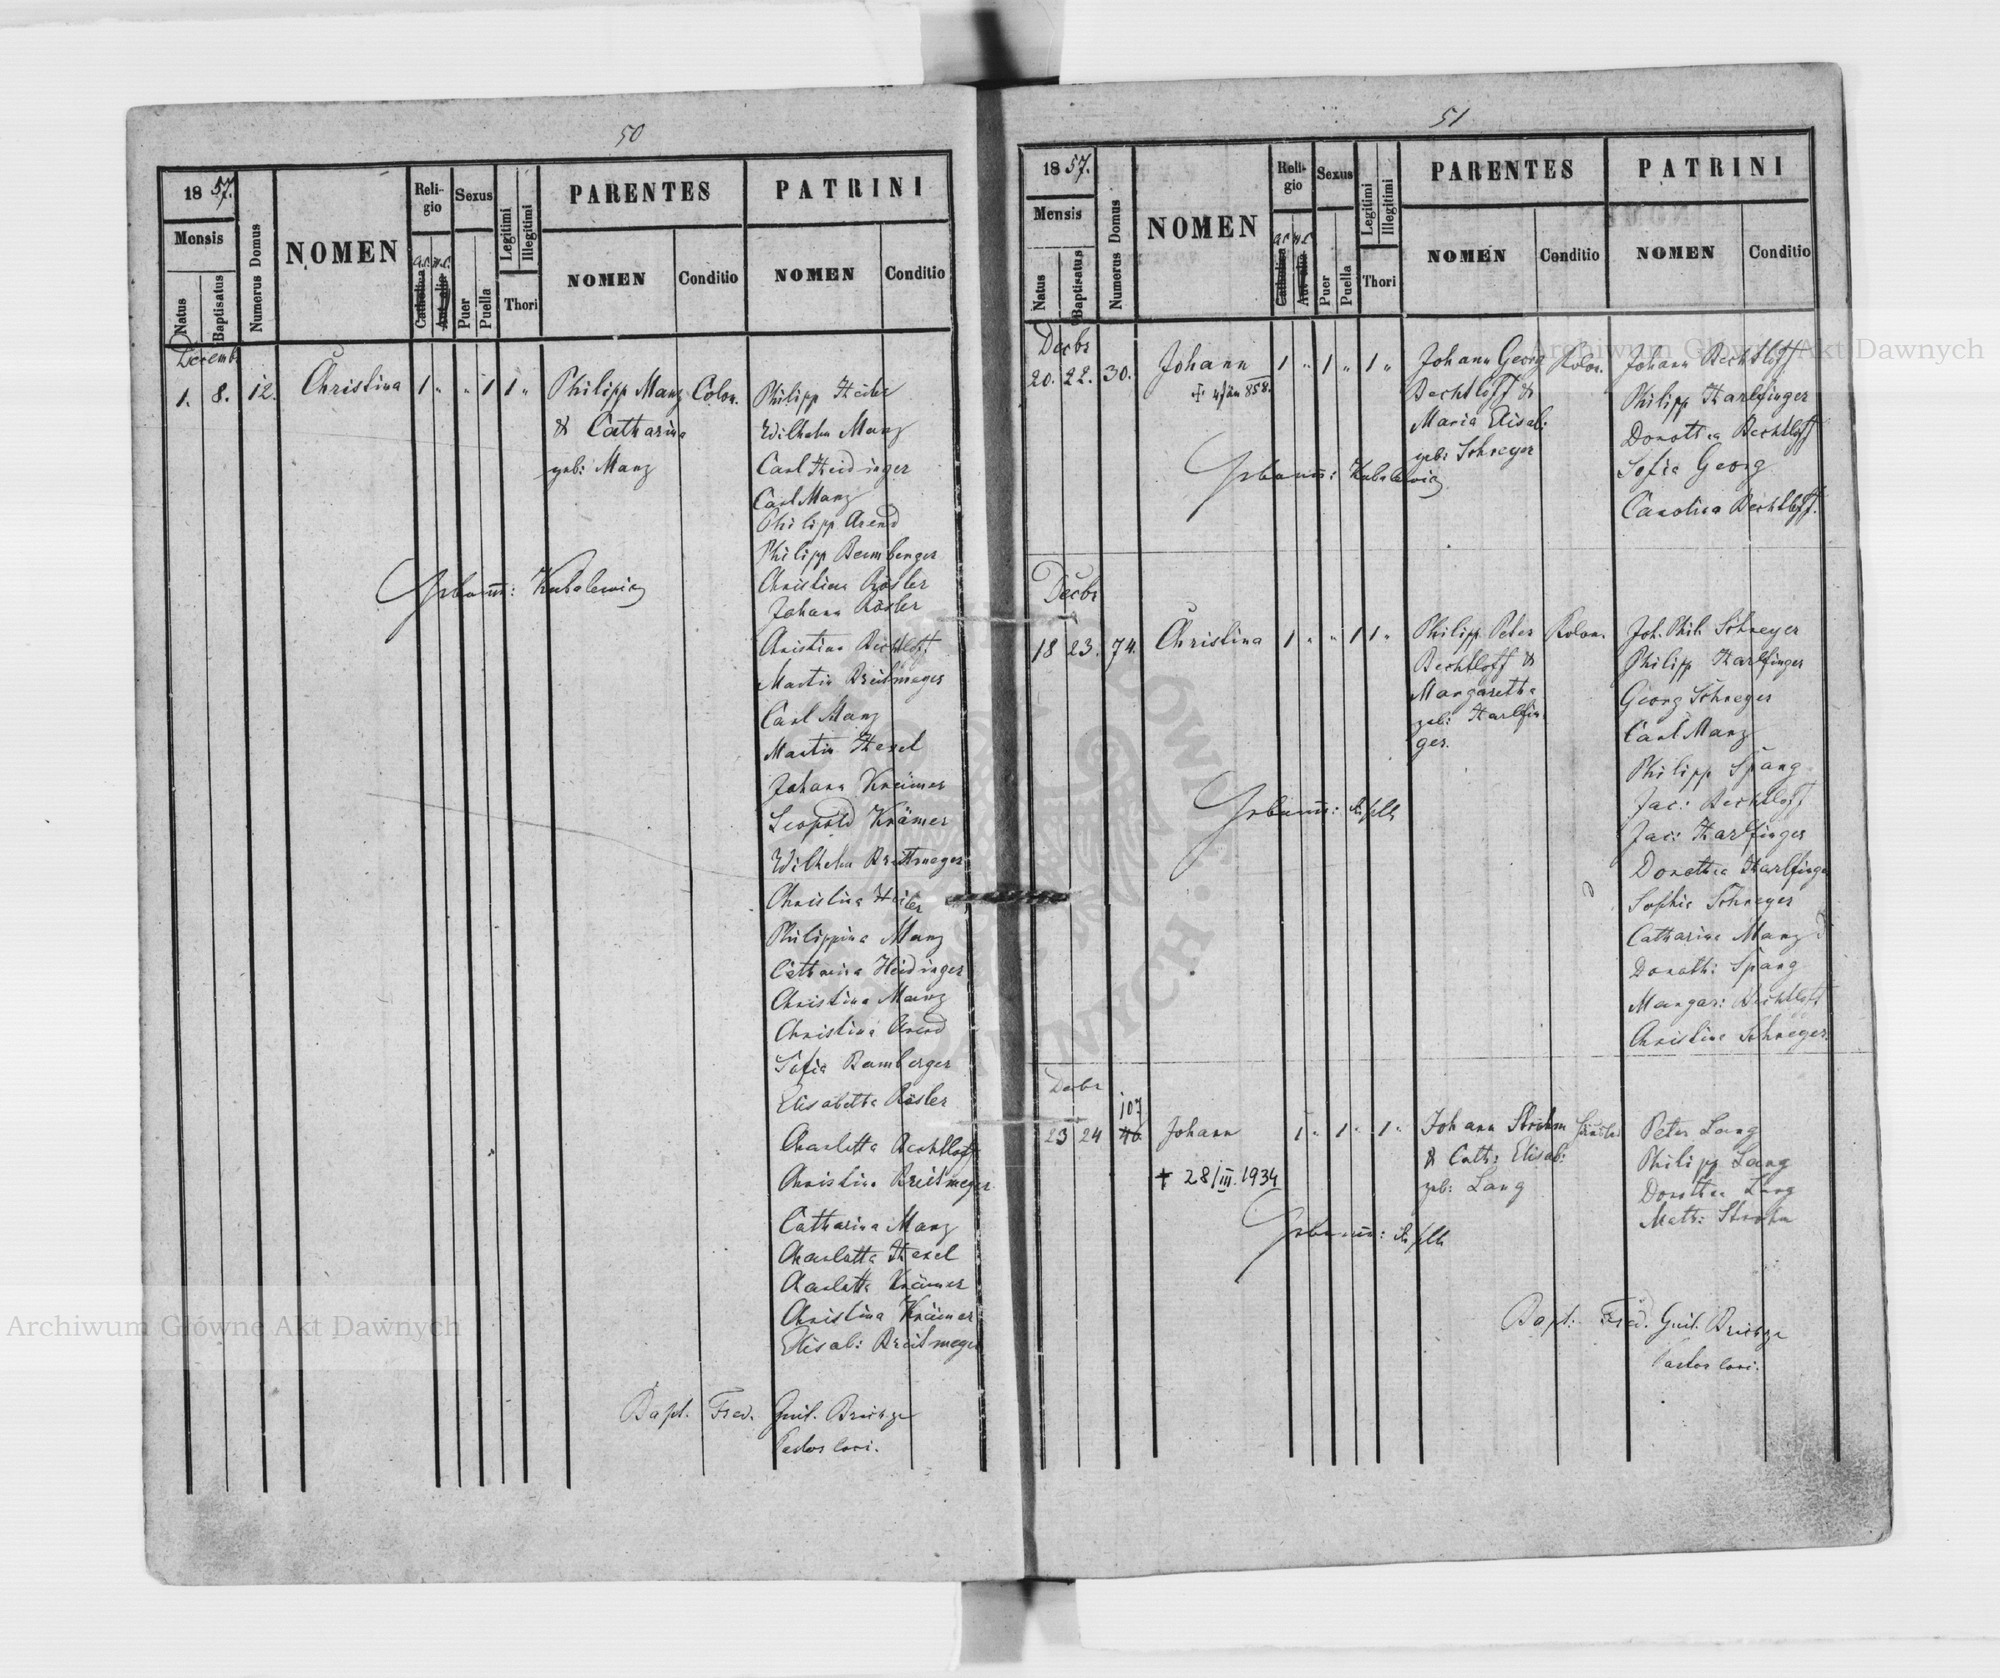 50
1857.
Mensis
Natus
Baptisatus
Numerus Domus
NOMEN
Reli-
gio
A.C. H.C.
Catholica
Aut alia
Sexus
Puer
Puella
Legitimi
Illegitimi
Thori
PARENTES
NOMEN
Conditio
PATRINI
NOMEN
Conditio
Decemb
1. 8. 12. Christina 1 " " 1 1 " Philipp Manz Colon.
& Catharina
geb: Manz
Philipp Heiler
Wilhelm Manz
Carl Heidinger
Carl Manz
Philipp Arend
Philipp Bemberger
Christian Rösler
Johann Rösler
Christian Bechtloff
Martin Breitmeyer
Carl Manz
Martin Hexel
Johann Krämer
Leopold Krämer
Wilhelm Breitmeyer
Christina Heiler
Philippina Manz
Catharina Heidinger
Christina Manz
Christina Arend
Sofia Bamberger
Elisabetha Rösler
Charlotta Bechtloff
Christina Breitmeyer
Catharina Manz
Charlotta Hexel
Charlotta Krämer
Christina Krämer
Elisab: Breitmeyer
Kubalewicz
Bapt. Fred. Guil.
Pastor loci.
51
1857.
Mensis
Natus
Baptisatus
Numerus Domus
NOMEN
Reli-
gio
A.C. H.C.
Catholica
Aut alia
Sexus
Puer
Puella
Legitimi
Illegitimi
Thori
PARENTES
NOMEN
Conditio
PATRINI
NOMEN
Conditio
Decbr
20. 22. 30. Johann 1 " 1 " 1 " Johann Georg Kolon.
+ 4/Jän 858.
Bechtloff &
Maria Elisab:
geb: Schreyer
Johann Bechtloff
Philipp Harlfinger
Dorothea Bechtloff
Sofia Georg
Carolina Bechtloff.
Kubalewicz
Decbr
18 23. 74. Christina 1 " " 1 1 " Philipp Peter Kolon.
Bechtloff &
Margaretha
geb: Harlfin
ger.
Joh. Phil. Schreyer
Philipp Harlfinger
Georg Schreyer
Carl Manz
Philipp Spang
Jac: Bechtloff
Jac: Harlfinger
Dorothea Harlfinger
Sophia Schreyer
Catharina Manz
Doroth: Spang
Margar: Bechtloff
Christine Schreyer
Decbr
107
23 24 46 Johann 1 " 1 " 1 " Johann Strohm
+ 28/III.1934
& Cath: Elisab:
geb: Lang
Peter Lang
Philipp Lang
Dorothea Lang
Math: Strohm
Bapt. Fred. Guil.
Pastor loci.
Archiwum Główne Akt Dawnych
Archiwum Główne Akt Dawnych